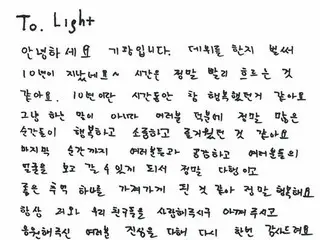 To. Light
안녕하세요 기광입니다. 데뷔를 한지 벌써
10년이 지났네요~ 시간은 정말 빨리 흐르는 것
같아요. 10년이란 시간동안 참 행복했던거 같아요
그냥 하는 말이 아니라 여러분 덕분에 정말 많은
순간들이 행복하고 소중하고 즐거웠던 것 같아요
마지막 순간까지 여러분들과 공감하고 여러분들의
얼굴을 보고 갈 수 있게 되서 정말 다행이고
좋은 추억 하나를 가져가게 된 것 같아 정말 행복해요
항상 저와 우리 친구들을 사랑해주시구 아껴주시고
응원해주신 여러분 진심을 다해 다시 한번 감사드려요